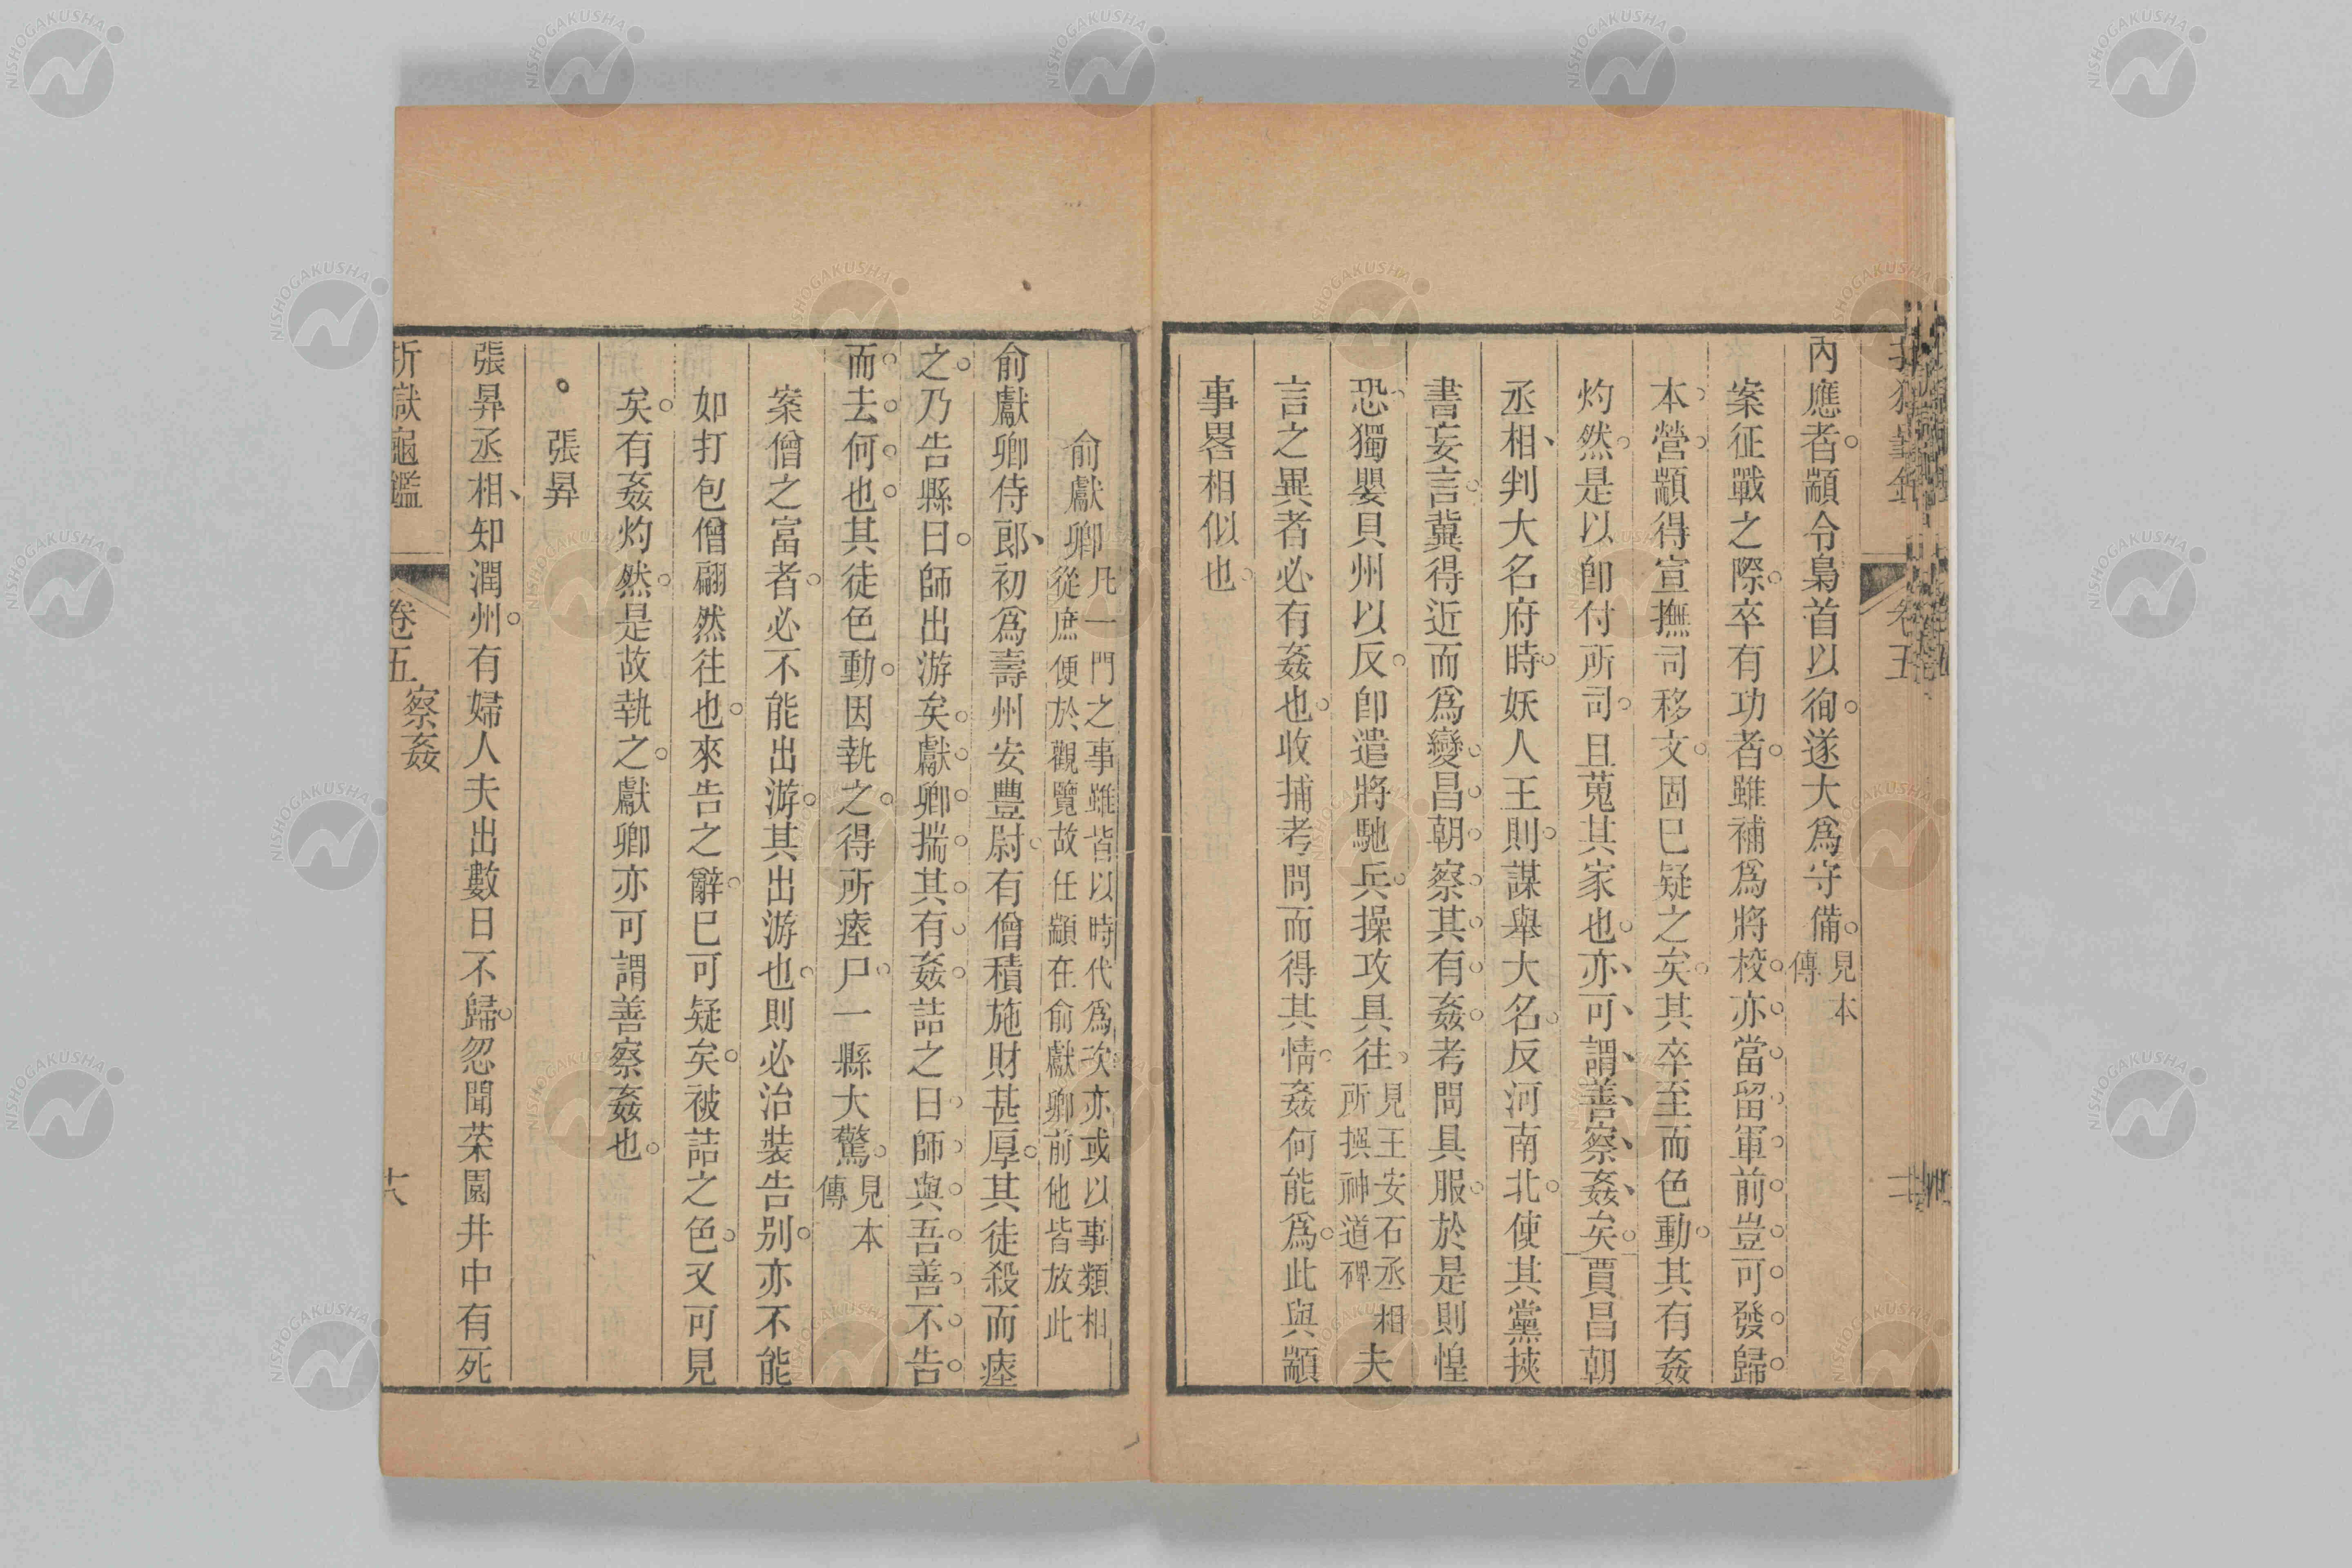 內應者顓令梟首以徇遂大爲守備見本傳
案征戰之際卒有功者雖補爲將校亦當留軍前豈可發歸
本營顓得宣撫司移文固已疑之矣其卒至而色動其有姦
灼然是以卽付所司且蒐其家也亦可謂善察姦矣賈昌朝
丞相判大名府時妖人王則謀舉大名反河南北使其黨挾
書妄言冀得近而爲變昌朝察其有姦考問具服於是則惶
恐獨嬰貝州以反卽遣將馳兵操攻具往見王安石丞相所撰神道碑夫
言之異者必有姦也收捕考問而得其情姦何能爲此與顓
事畧相似也
俞獻卿凡一門之事雖皆以時代爲次亦或以事類相從庶便於觀覽故任顓在俞獻卿前他皆放此
俞獻卿侍郎初爲壽州安豐尉有僧積施財甚厚其徒殺而瘞
之乃告縣曰師出游矣獻卿揣其有姦詰之曰師與吾善不告
而去何也其徒色動因執之得所瘞尸一縣大驚見本傳
案僧之富者必不能出游其出游也則必治裝告別亦不能
如打包僧翩然往也來告之辭已可疑矣被詰之色又可見
矣有姦灼然是故執之獻卿亦可謂善察姦也
張昇
張昇丞相知潤州有婦人夫出數日不歸忽聞菜園井中有死
折獄龜鑑 卷五 察姦 十八
NISHOGAKUSHA